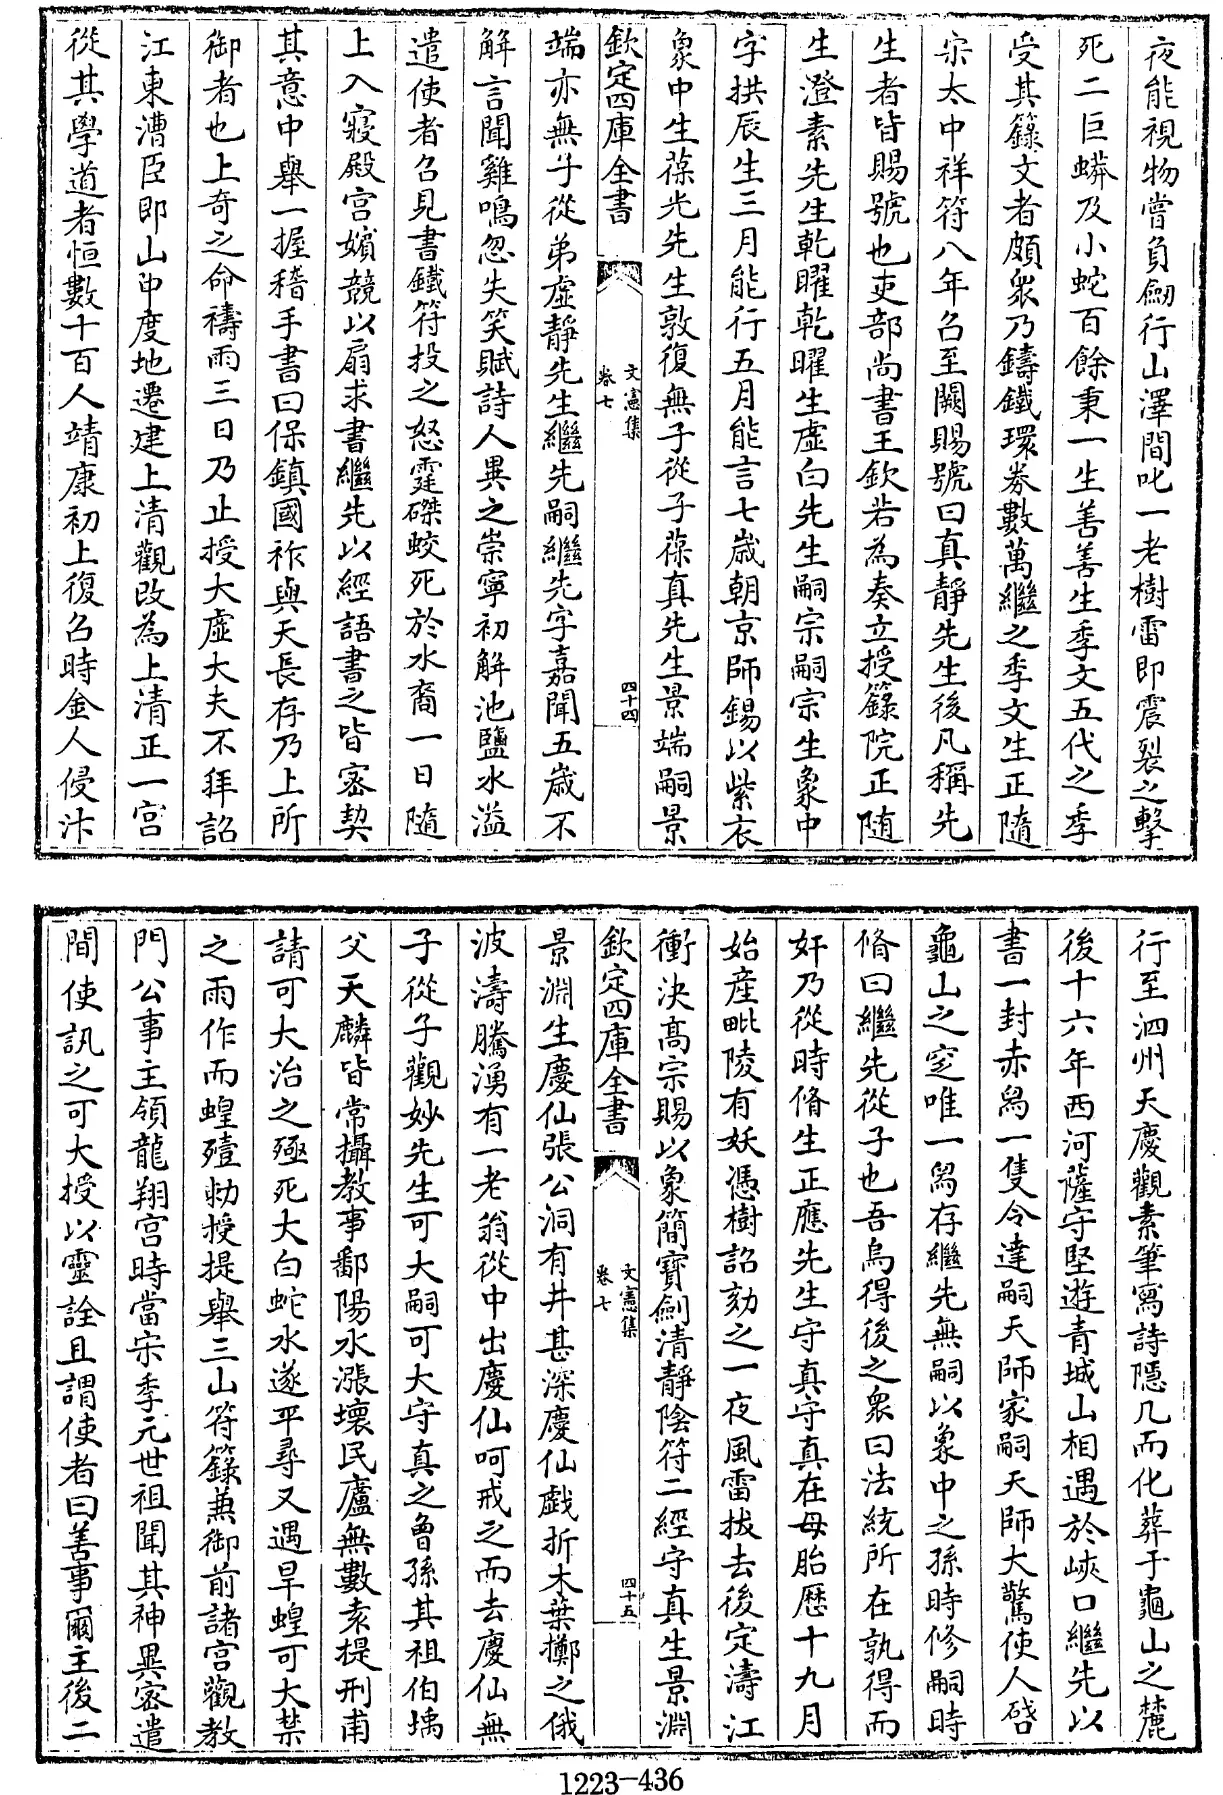 夜能視物嘗負劒行山澤間叱一老樹雷即震裂之擊
死二巨蟒及小蛇百餘秉一生善善生季文五代之季
受其籙文者頗衆乃鑄鐵環券數萬繼之季文生正隨
宋太中祥符八年召至闕賜號曰真靜先生後凡稱先
生者皆賜號也吏部尚書王欽若為奏立授籙院正隨
生澄素先生乾曜乾曜生虛白先生嗣宗嗣宗生象中
字拱辰生三月能行五月能言七歲朝京師錫以紫衣
象中生葆光先生敦復無子從子葆真先生景端嗣景
欽定四庫全書
文憲集
卷七
四十四
端亦無子從弟虛靜先生繼先嗣繼先字嘉聞五歲不
解言聞雞鳴忽失笑賦詩人異之崇寧初解池鹽水溢
遣使者召見書鐵符投之怒霆磔蛟死於水裔一日隨
上入寢殿宮嬪競以扇求書繼先以經語書之皆密契
其意中舉一握稽手書曰保鎮國祚與天長存乃上所
御者也上奇之命禱雨三日乃止授大虛大夫不拜詔
江東漕臣即山中度地遷建上清觀改為上清正一宮
從其學道者恒數十百人靖康初上復召時金人侵汴
行至泗州天慶觀素筆寫詩隱几而化葬于龜山之麓
後十六年西河薩守堅遊青城山相遇於峽口繼先以
書一封赤舄一隻令達嗣天師家嗣天師大驚使人啓
龜山之窆唯一舄存繼先無嗣以象中之孫時修嗣時
脩曰繼先從子也吾烏得後之衆曰法統所在孰得而
奸乃從時脩生正應先生守真守真在母胎歷十九月
始產毗陵有妖憑樹詔劾之一夜風雷拔去後定濤江
衝決高宗賜以象簡寶劍清靜陰符二經守真生景淵
欽定四庫全書
文憲集
卷七
四十五
景淵生慶仙張公洞有井甚深慶仙戲折木葉擲之俄
波濤騰湧有一老翁從中出慶仙呵戒之而去慶仙無
子從子觀妙先生可大嗣可大守真之曾孫其祖伯瑀
父天麟皆常攝教事鄱陽水漲壞民廬無數袁提刑甫
請可大治之殛死大白蛇水遂平尋又遇旱蝗可大禁
之雨作而蝗殪勅授提舉三山符籙兼御前諸宮觀教
門公事主領龍翔宮時當宋季元世祖聞其神異密遣
間使訊之可大授以靈詮且謂使者曰善事爾主後二
1223-436